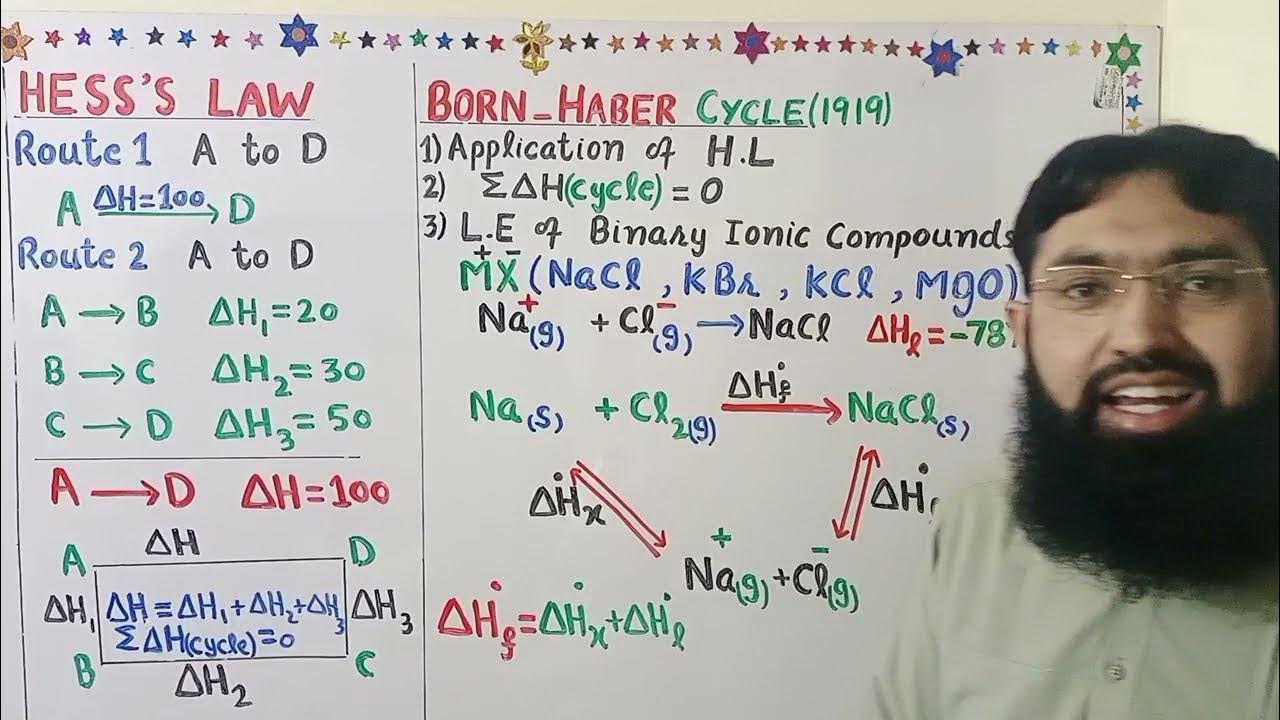 HESS'S LAW
Route 1 A to D
A ΔH=100→ D
Route 2 A to D
A → B ΔH₁=20
B → C ΔH₂=30
C → D ΔH₃=50
A → D ΔH=100
ΔH
A D
ΔH₁ ΔH=ΔH₁+ΔH₂+ΔH₃ ΔH₃
ΣΔH(cycle)=0
B C
ΔH₂
BORN-HABER CYCLE(1919)
1) Application of H.L
2) ΣΔH(cycle)=0
3) L.E of Binary Ionic Compounds
M⁺X⁻(NaCl, KBr, KCl, MgO)
Na⁺(g) + Cl⁻(g) → NaCl ΔHℓ=-787
Na(s) + Cl₂(g) ΔH°f→ NaCl(s)
ΔH°x ΔH°
Na⁺(g)+Cl⁻(g)
ΔH°f=ΔH°x+ΔH°ℓ